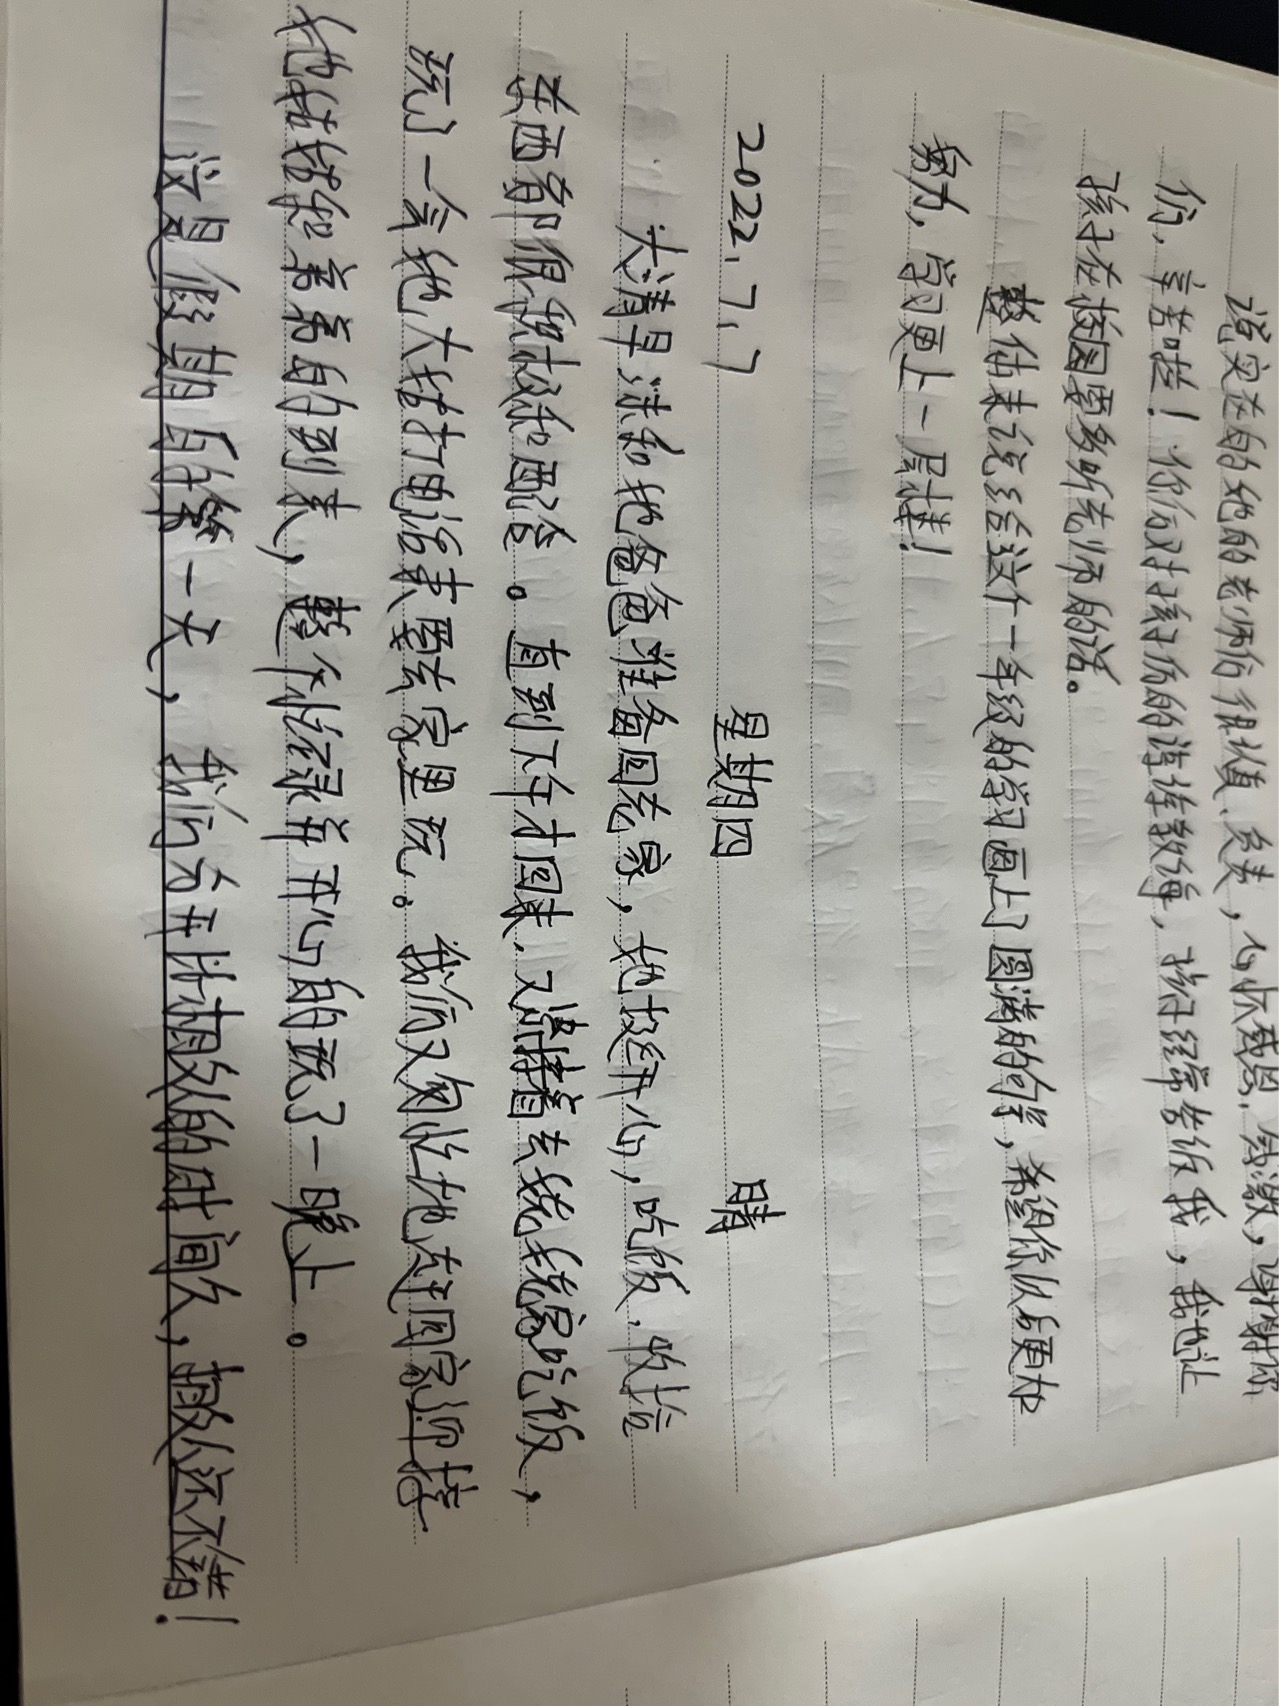 说实在的她的老师们很认真、负责，心怀感恩，感激，谢谢你
们，辛苦啦！你们对孩子们的谆谆教诲，孩子经常告诉我，我也让
孩子在校园要多听老师的话。
整体来说给这个一年级的学习画上了圆满的句号，希望你以后更加
努力，学习更上一层楼！
2022.7.7 星期四 晴
大清早 涞和他爸爸准备回老家，她挺开心，吃饭，收拾
东西都很积极和配合。直到下午才回来，又嚷着去我家吃饭，
玩了一会他大姑打电话来要去家里玩。我们又匆忙地赶回家迎接
他姑姑和弟弟的到来，整个沉浸并开心的玩了一晚上。
这是假期的第一天，我们分开陪相处的时间久，相处还不错！